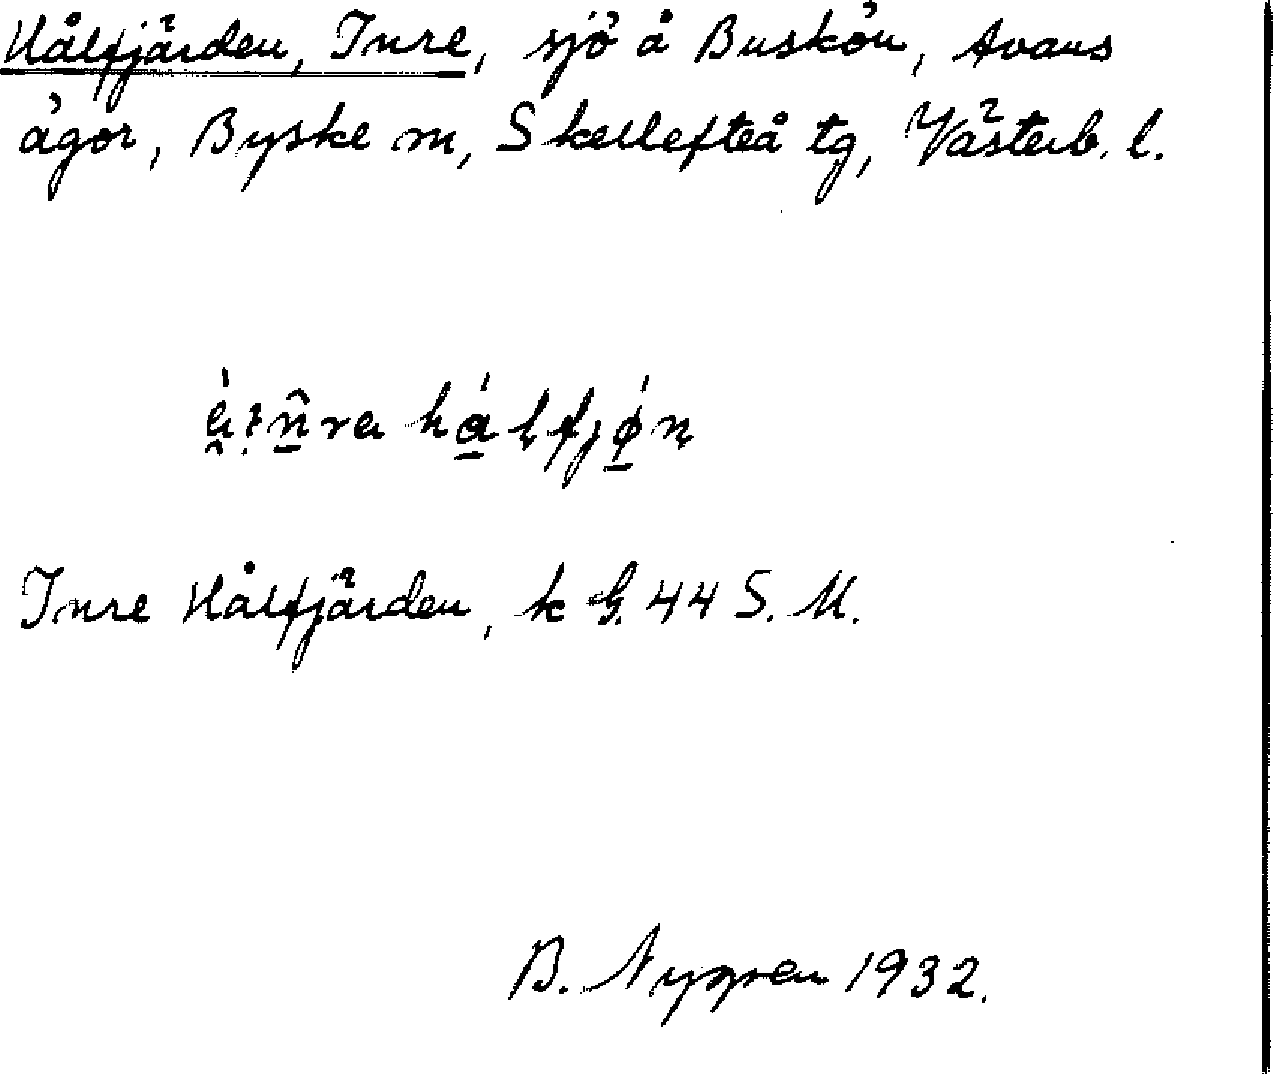 Hålfjärden, Inre, sjö å Buskön, Avans
ägor, Byske sn, Skellefteå tg, Västerb. l.
Inre Hålfjärden, k G. 44 S. M.
B. Nygren 1932.